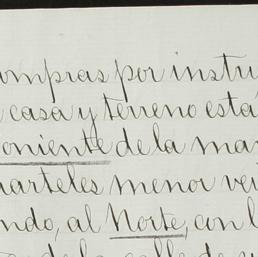 ompras por instru
casa y terreno está
oniente de la man
uarteles menor vei
ndo, al Norte, con l
de la calle de